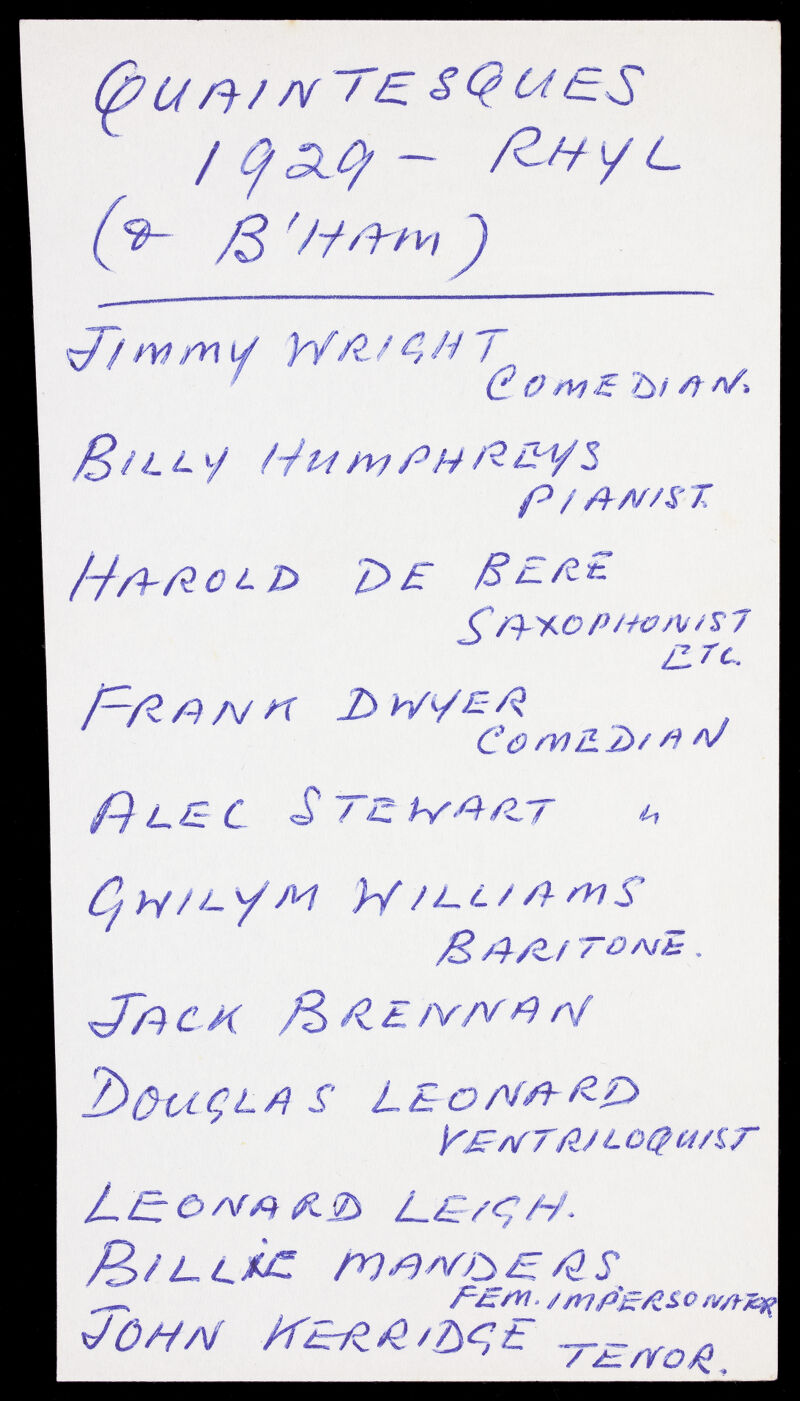 QUAINTESQUES
1929 – RHYL
(& B'HAM)
JIMMY WRIGHT
COMEDIAN.
BILLY HUMPHREYS
PIANIST.
HAROLD DE BERE
SAXOPHONIST
ETC.
FRANK DWYER
COMEDIAN
ALEC STEWART "
GWILYM WILLIAMS
BARITONE.
JACK BRENNAN
DOUGLAS LEONARD
VENTRILOQUIST
LEONARD LEIGH.
BILLIE MANDERS
FEM. IMPERSONATOR
JOHN KERRIDGE
TENOR.